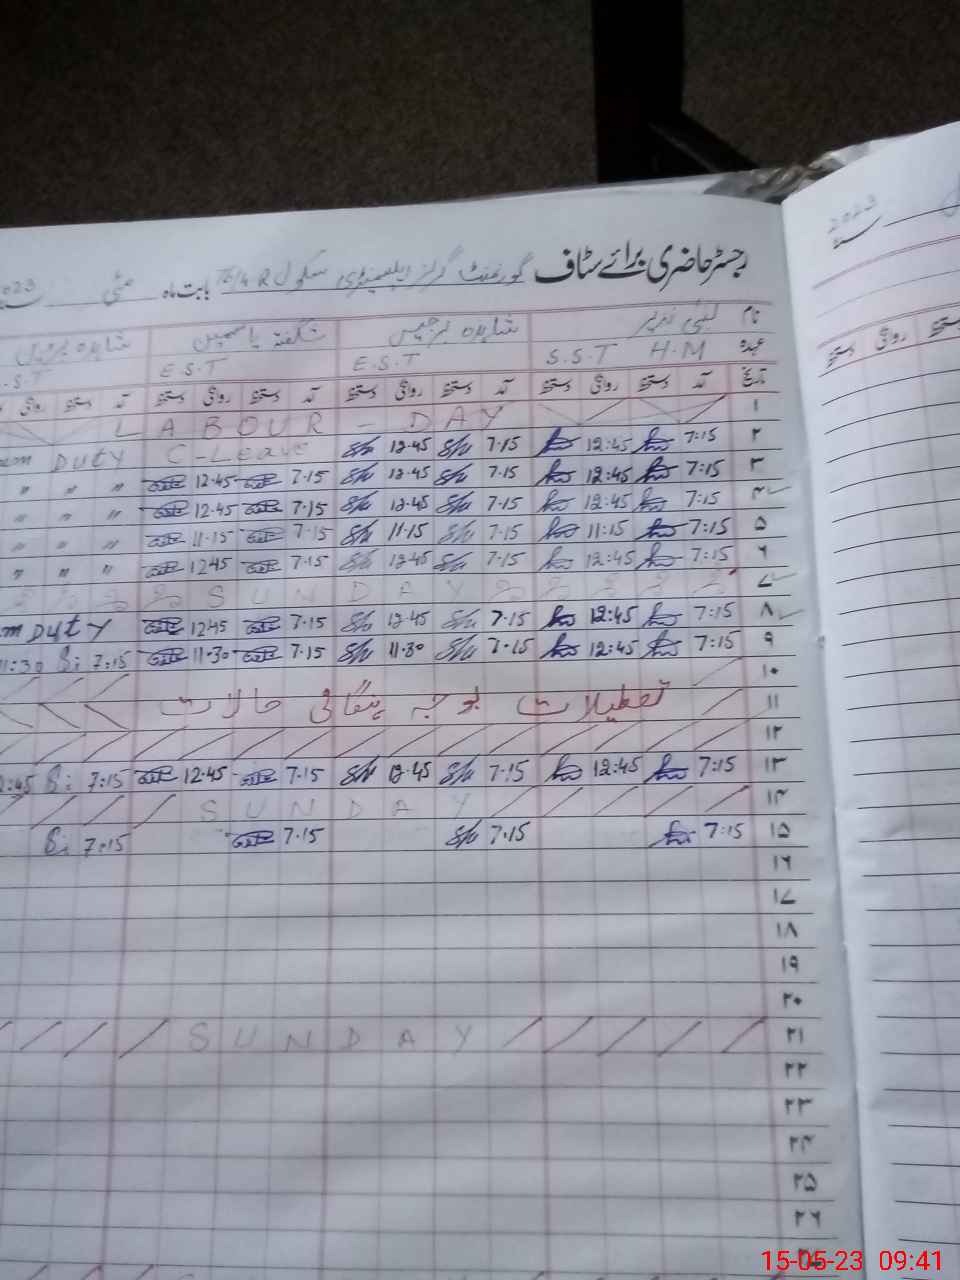 رجسٹر حاضری برائے سٹاف گورنمنٹ گرلز ایلیمنٹری سکول 76/4 R بابت ماہ مئی 2023
نام شاہدہ برجیس شگفتہ یاسمین شاہدہ
عہدہ S.S.T H.M E.S.T E.S.T S.T
تاریخ آمد دستخط روانگی دستخط آمد دستخط روانگی دستخط آمد دستخط روانگی دستخط آمد دستخط روانگی
۱ LABOUR - DAY
۲ 7:15 12:45 7.15 12.45 C-Leave Duty
۳ 7:15 12:45 7.15 12.45 7.15 12.45 " " "
۴ 7:15 12:45 7.15 12.45 7.15 12.45 " " "
۵ 7:15 11:15 7.15 11.15 7.15 11.15 " " "
۶ 7:15 12:45 7.15 12.45 7.15 1245 " " "
۷ SUNDAY
۸ 7:15 12:45 7.15 12.45 7.15 1245 Duty
۹ 7:15 12:45 7.15 11.30 7.15 11.30 7:15 11:30
۱۰
۱۱ تعطیلات بوجہ ہنگامی حالات
۱۲
۱۳ 7:15 12:45 7.15 12.45 7.15 12.45 7:15 2:45
۱۴ SUNDAY
۱۵ 7:15 7.15 7.15 7:15
۱۶
۱۷
۱۸
۱۹
۲۰
۲۱ SUNDAY
۲۲
۲۳
۲۴
۲۵
۲۶
2023
دستخط روانگی دستخط
15-05-23 09:41